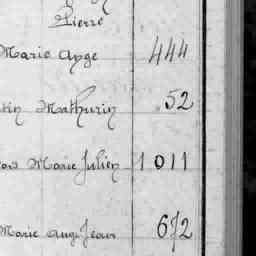 Pierre
Marie Ange 444
Mathurin 52
Marie Julien 1011
Marie Ange Jean 672